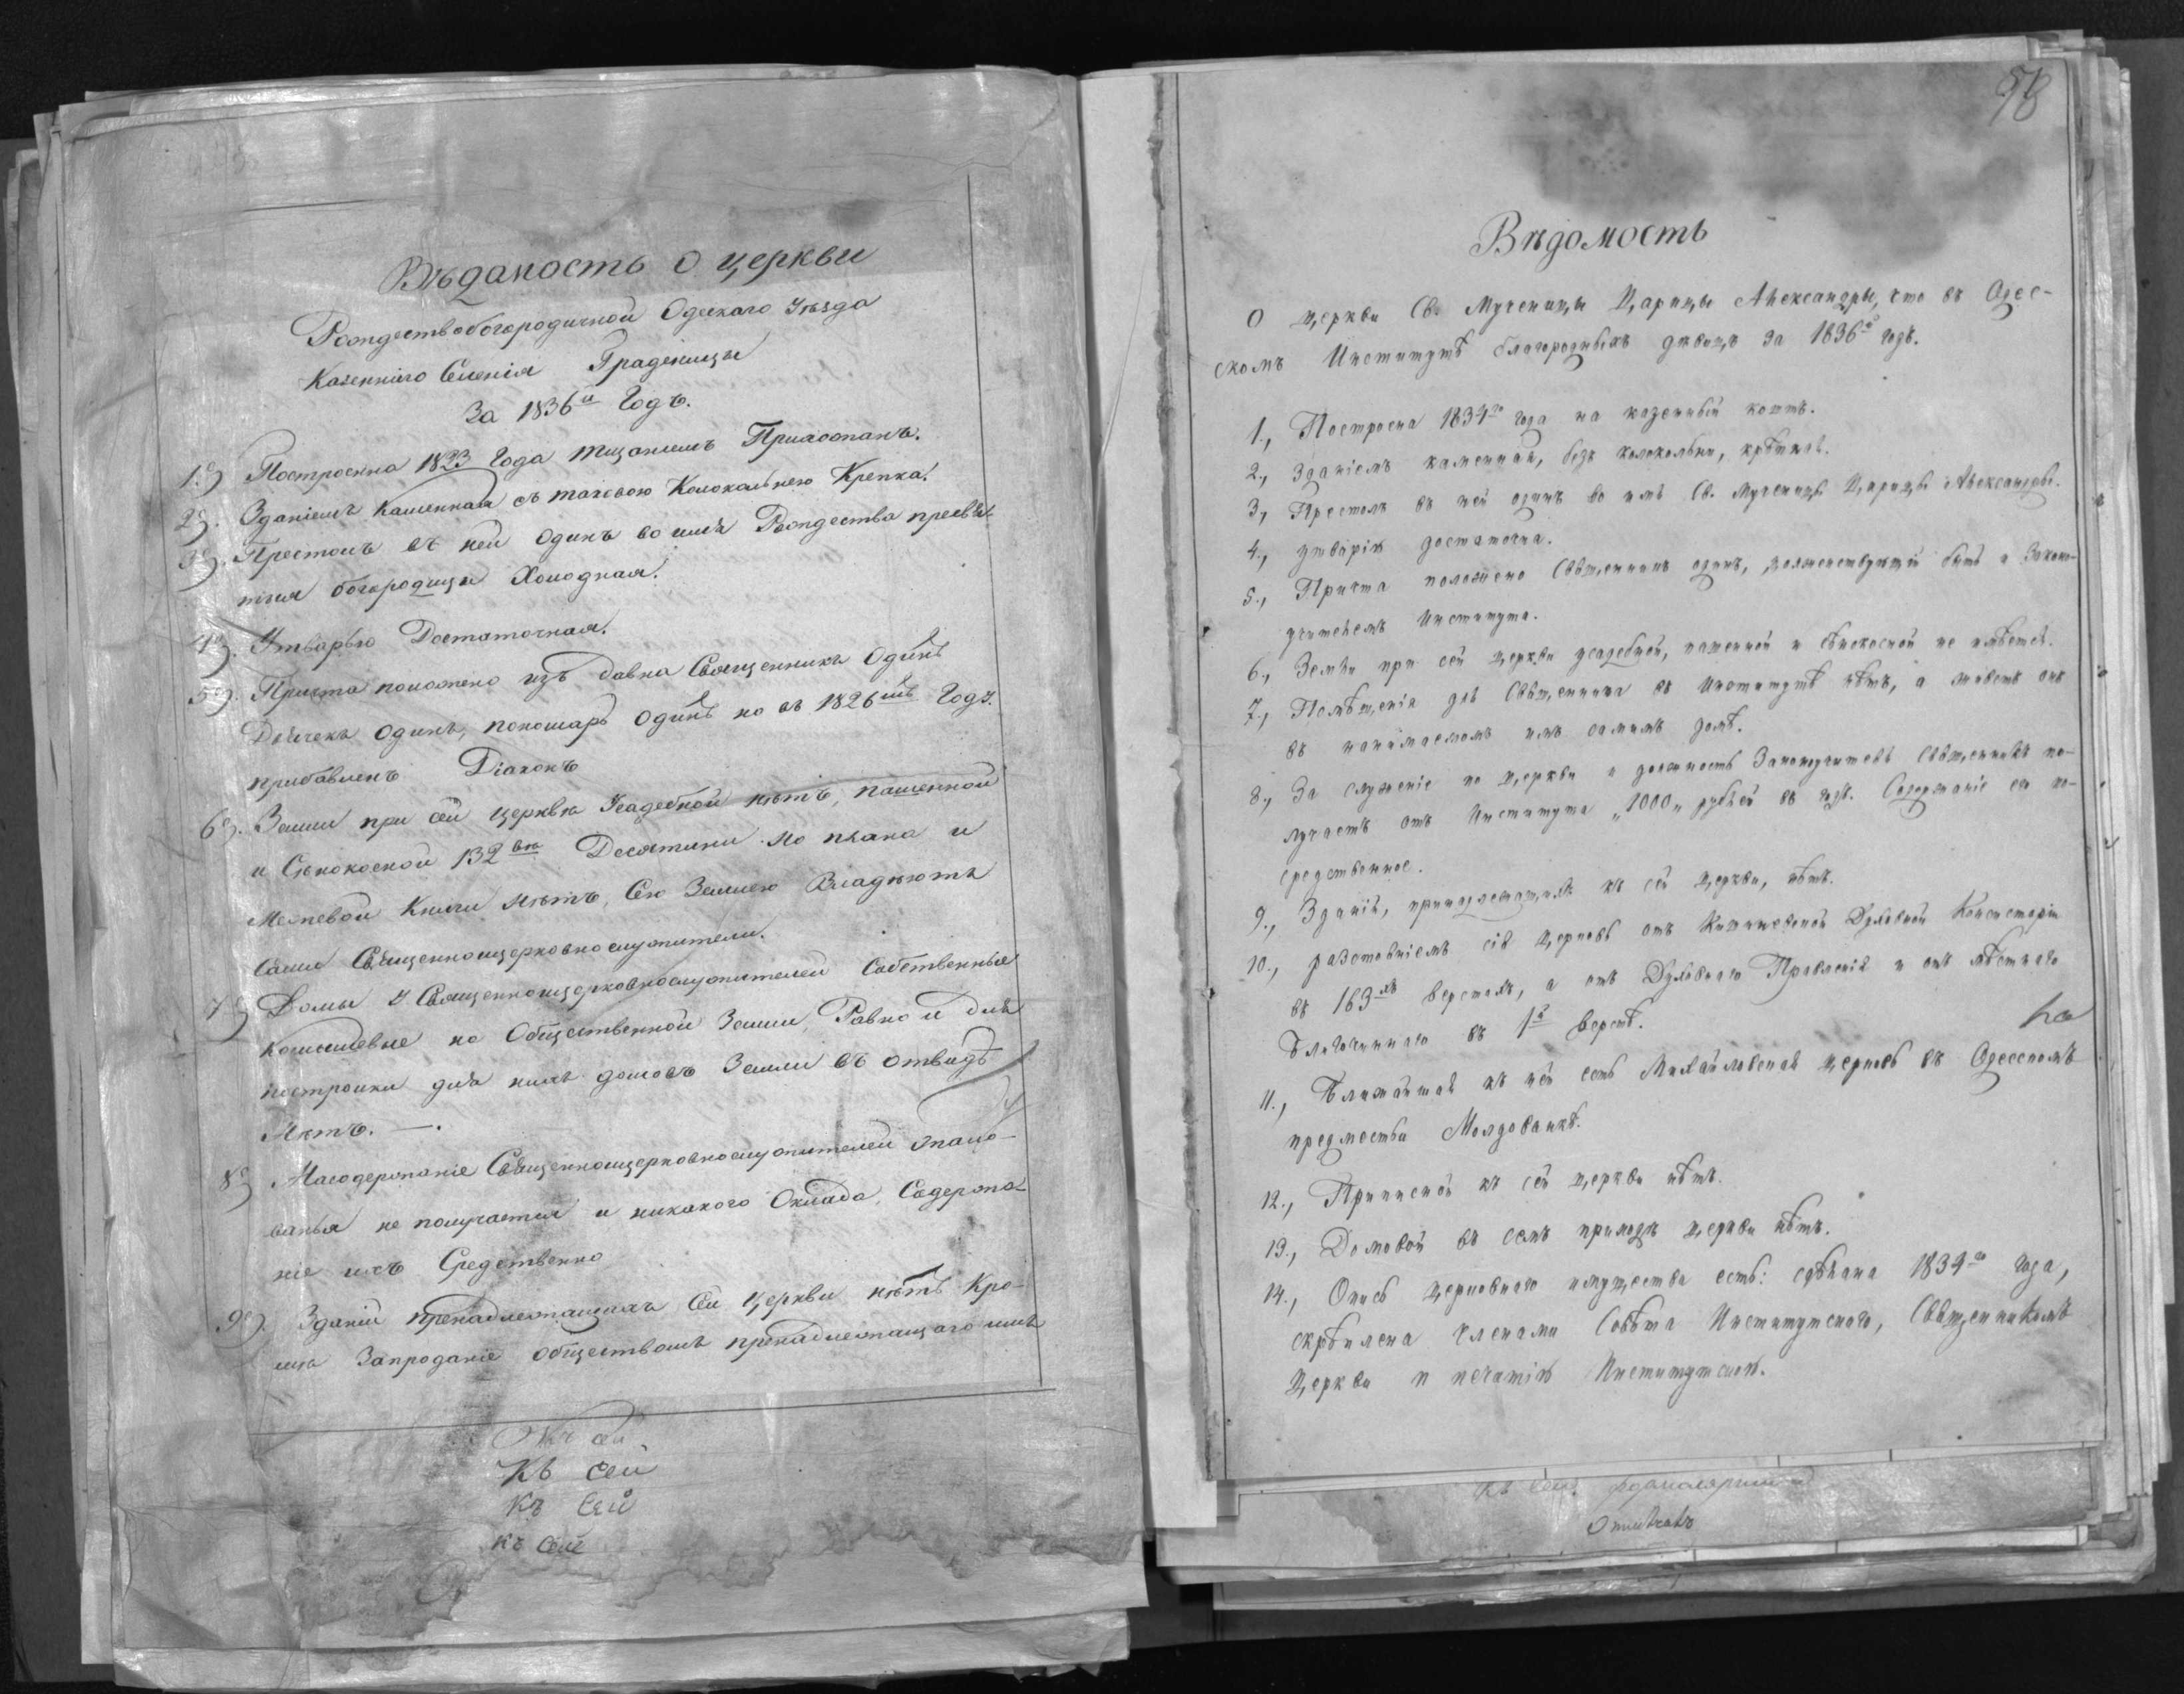 Вѣдамость о церкви
Рождествобогородичной Одескаго Уѣзда
Казеннаго Селенія Граденицы
За 1836й Годъ.
1е) Построенна 1823 Года тщаніемъ Прихожанъ.
2е). Зданіемъ Каменная съ таковою Колокольнею Крепка.
3е). Престолъ въ ней Одинъ во имя Рождества пресвя-
тыя богородицы Холодная.
4е). Утварью Достаточная.
5е). Причта положено изъ давна Священникъ Одинъ
Дьячекъ Одинъ, пономарь Одинъ но въ 1826мъ Году.
прибавленъ Діаконъ
6е). Земли при сей церквѣ Усадебной нѣтъ, пашенной
и Сѣнокосной 132вѣ Десятини но плана и
Межевой Книги нѣтъ, Сею Землею Владѣютъ
Сами Священноцерковнослужители.
7е) Домы у Священноцерковнослужителей Собственные
на Общественной Земли, Равно и для
постройки для нихъ домовъ Земли въ отводѣ
Нѣтъ. —.
8е) На содержаніе Священноцерковнослужителей жало-
ванья не получается и никакого Оклада, Содержа-
ніе ихъ Средственно
9е). Зданій пренадлежащихъ Сей Церкви нѣтъ Кро-
мѣ Запроданіе обществомъ пренадлежащаго имъ
Къ сей
Къ Сей
Къ Сей
58
Вѣдомость
О церкви Св. Мученицы Царицы Александры, что въ Одес-
скомъ Институтѣ благородныхъ дѣвицъ за 1836й годъ.
1., Построена 1834го года на казенный коштъ.
2., Зданіемъ каменная, безъ колокольни, крѣпкая.
3., Престолъ въ ней одинъ во имя Св. Мученицы Царицы Александры.
4., Утварію достаточна.
5., Причта положено Священникъ одинъ, долженствующій быть и Законо-
учителемъ Института.
6., Земли при сей церкви усадебной, пашенной и сѣнокосной не имѣется.
7., Помѣщенія для Священника въ Институтѣ нѣтъ, а живетъ онъ
въ нанимаемомъ имъ самимъ домѣ.
8., За служеніе по церкви и должность Законоучителя Священникъ по-
лучаетъ отъ Института „1000„ рублей въ годъ. Содержаніе сіе по-
средственное.
9., Зданій, принадлежащихъ къ сей церкви, нѣтъ.
10., разстояніемъ сія церковь отъ Кишиневской Духовной Консисторіи
въ 163хъ верстахъ, а отъ Духовнаго Правленія и отъ мѣстнаго
Благочиннаго въ 1й верстѣ.
11., Ближайшая къ ней есть Михайловская церковь въ Одесскомъ
предместьи Молдованкѣ.
12., Приписной къ сей церкви нѣтъ.
13., Домовой въ семъ приходѣ церкви нѣтъ.
14., Опись церковнаго имущества есть: сдѣлана 1834го года,
скрѣплена членами Совѣта Институтскаго, Священникомъ
церкви и печатію Институтскою.
Къ Сей